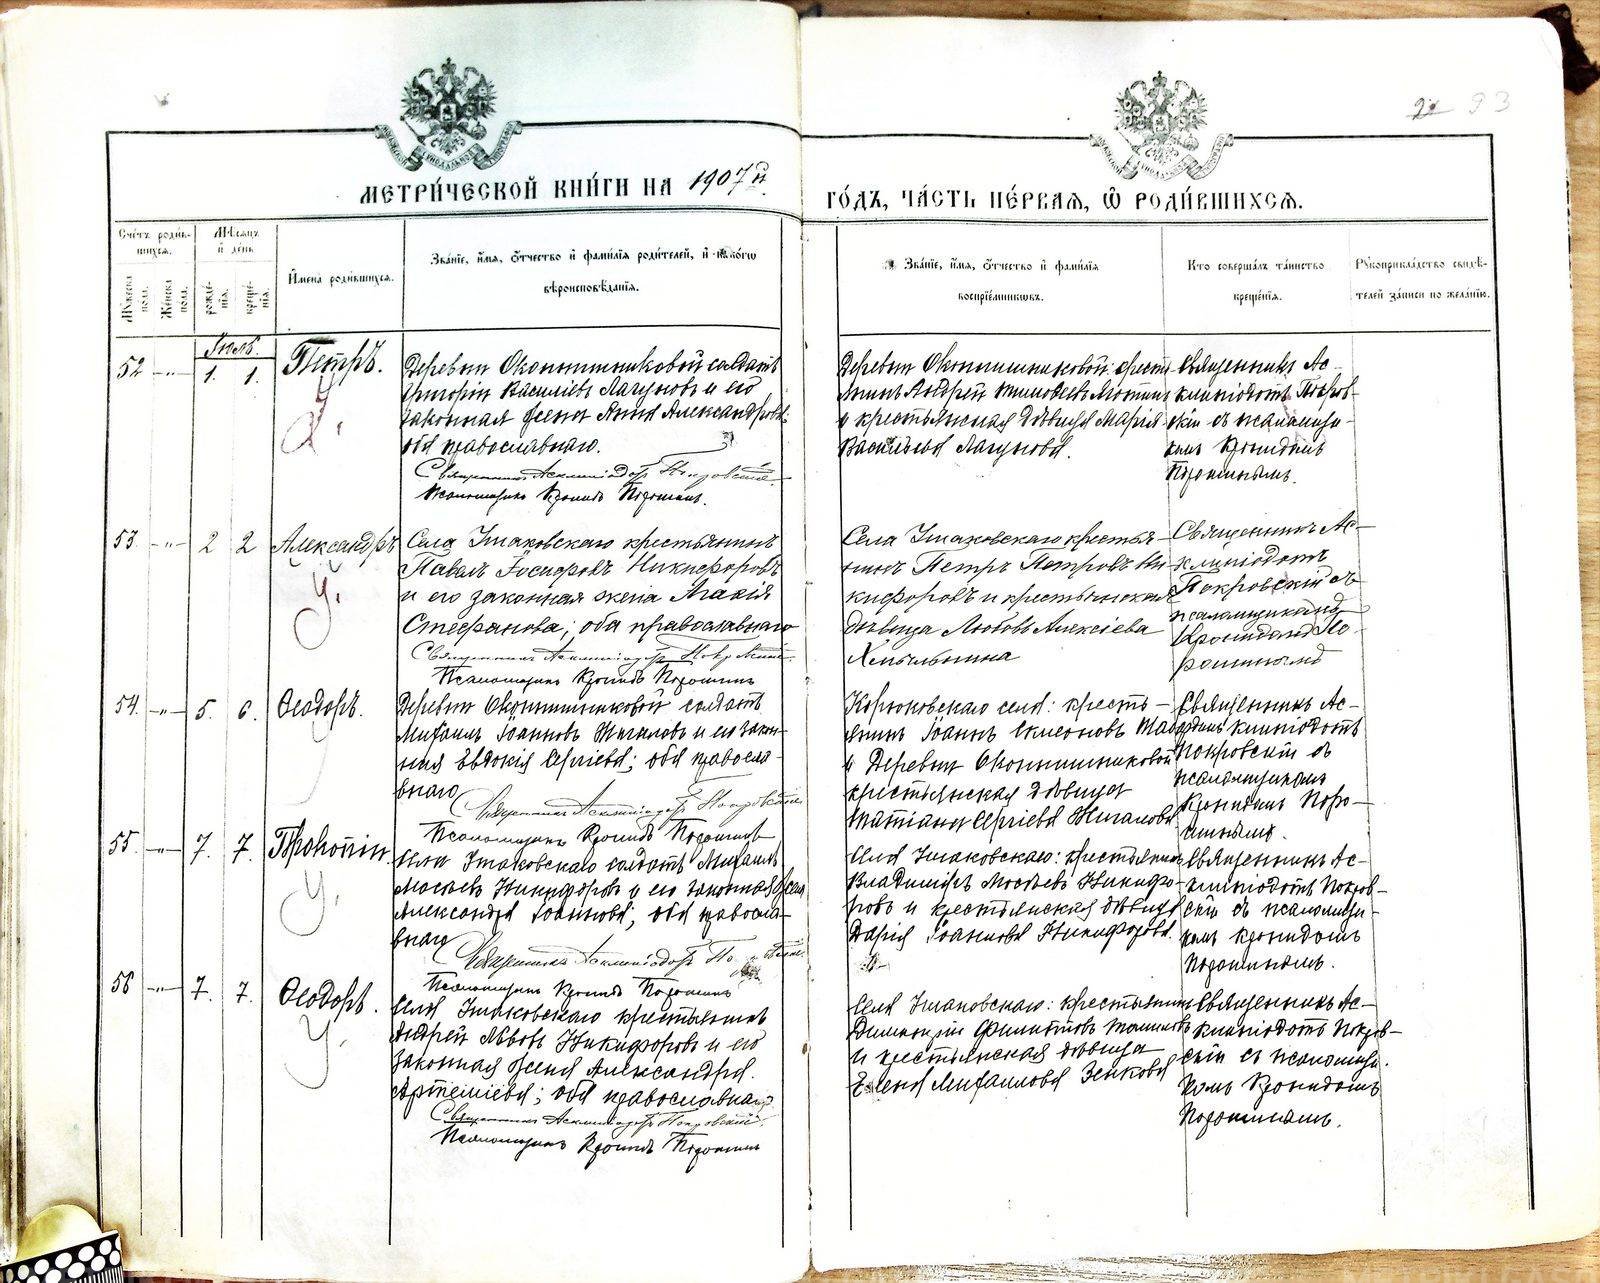 93
МЕТРИ́ЧЕСКОЙ КНИ́ГИ НА 1907й
ГО́ДЪ, ЧА́СТЬ ПЕ́РВАЯ, Ѡ РОДИ́ВШИХСЯ.
Сче́тъ роди́в-
шихся.
Мѣсяцъ
и день
Мужеска пола.
Женска пола.
рожде-
нія.
креще-
нія.
Имена роди́вшихся.
Зва́ніе, и́мя, о́тчество и фами́лія роди́телей, и како́гѡ
вѣроисповѣ́данія.
Зва́ніе, и́мя, о́тчество и фами́лія
воспріе́мниковъ.
Кто соверша́лъ та́инство
креще́нія.
Рукоприкла́дство свидѣ́-
телей за́писи по жела́нію.
Іюль.
52 -"- 1. 1. Петръ.
Деревни Окопишниковой солдатъ
Григорій Василіевъ Лагуновъ и его
законная жена Анна Александрова;
оба православнаго.
Священникъ Асклипіодотъ Покровскій.
Псаломщикъ Кронидъ Порошинъ.
Деревни Окопишниковой: кресть-
янинъ Андрей Тимофеевъ
и крестьянская дѣвица Марія
Васильева Лагунова.
Священникъ Ас-
клипіодотъ Покров-
скій съ псаломщи-
комъ Кронидомъ
Порошинымъ.
53. -"- 2 2 Александръ
Села Утаковскаго крестьянинъ
Павелъ Іосифовъ Никифоровъ
и его законная жена Агафія
Стефанова; оба православнаго
Священникъ Асклипіодотъ Покровскій.
Псаломщикъ Кронидъ Порошинъ
Села Утаковскаго крестья-
нинъ Петръ Петровъ Ни-
кифоровъ и крестьянская
дѣвица Любовь Алексіева
Священникъ Ас-
клипіодотъ
Покровскій съ
псаломщикомъ
Кронидомъ По-
рошинымъ
54. -"- 5. 6. Ѳеодоръ.
Деревни Окопишниковой солдатъ
Михаилъ Іоанновъ Жигаловъ и его закон-
ная Евдокія Сергіева; оба правосла-
внаго
Священникъ Асклипіодотъ Покровскій
Псаломщикъ Кронидъ Порошинъ
села: кресть-
янинъ Іоаннъ Симеоновъ
и Деревни Окопишниковой
крестьянская дѣвица
Татіана Сергіева Жигалова
Священникъ Ас-
клипіодотъ
Покровскій съ
псаломщикомъ
Кронидомъ Поро-
шинымъ.
55. -"- 7. 7. Прокопій.
Села Утаковскаго солдатъ Михаилъ
Моѵсѣевъ Никифоровъ и его законная жена
Александра Іоаннова; оба правосла-
внаго
Священникъ Асклипіодотъ
Псаломщикъ Кронидъ Порошинъ
Села Утаковскаго: крестьянинъ
Владиміръ Моѵсѣевъ Никифо-
ровъ и крестьянская дѣвица
Дарія Іоаннова Никифорова.
Священникъ Ас-
клипіодотъ Покров-
скій съ псаломщи-
комъ Кронидомъ
Порошинымъ.
56 -"- 7. 7. Ѳеодоръ.
Села Утаковскаго крестьянинъ
Андрей Львовъ Никифоровъ и его
законная жена Александра
Артеміева; оба православнаго
Священникъ Асклипіодотъ Покровскій.
Псаломщикъ Кронидъ Порошинъ
Села Утаковскаго: крестьянинъ
Димитрій Филипповъ
и крестьянская дѣвица
Елена Михаилова Зенкова
Священникъ Ас-
клипіодотъ Покров-
скій съ псаломщи-
комъ Кронидомъ
Порошинымъ.